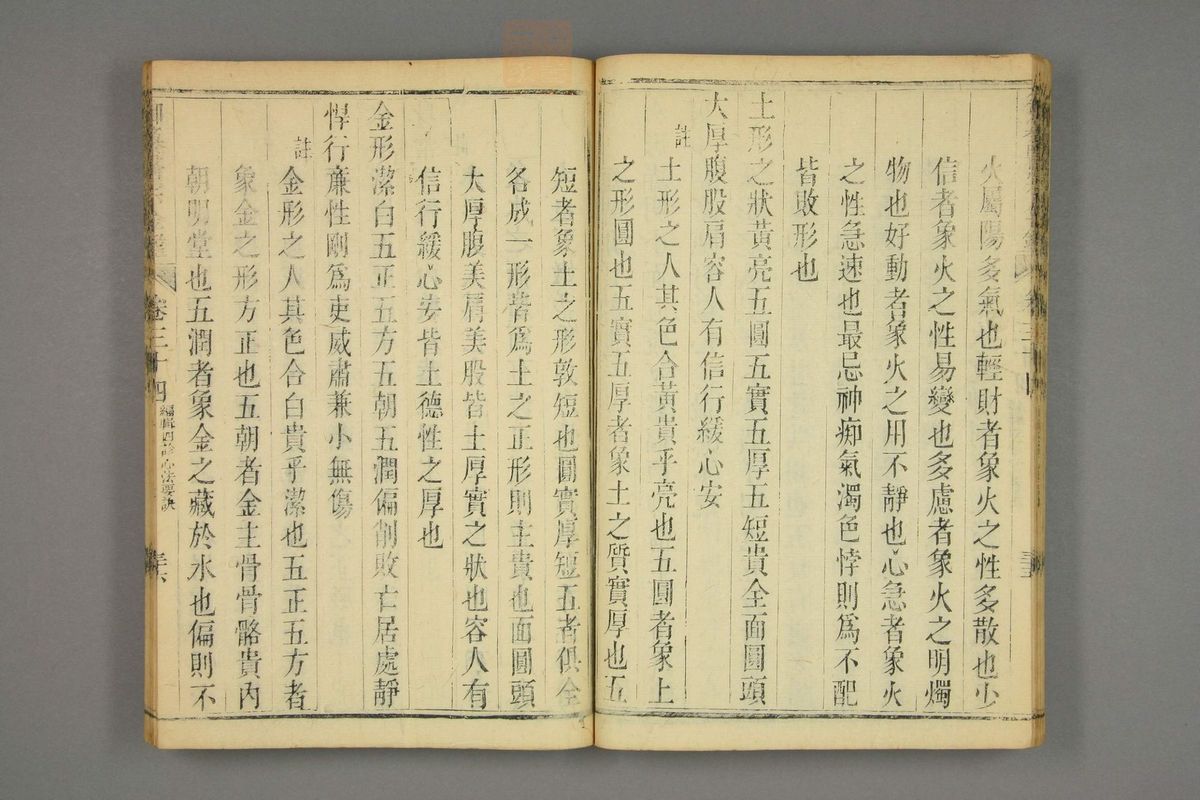 火屬陽多氣也輕財者象火之性多散也少
信者象火之性易變也多慮者象火之明燭
物也好動者象火之用不靜也心急者象火
之性急速也最忌神痴氣濁色悖則爲不配
皆敗形也
土形之狀黃亮五圓五實五厚五短貴全面圓頭
大厚腹股肩容人有信行緩心安
註
土形之人其色合黃貴乎亮也五圓者象土
之形圓也五實五厚者象土之質實厚也五
短者象土之形敦短也圓實厚短五者俱全
各成一形皆爲土之正形則主貴也面圓頭
大厚腹美肩美股皆土厚實之狀也容人有
信行緩心安皆土德性之厚也
金形潔白五正五方五朝五潤偏削敗亡居處靜
悍行廉性剛爲吏威肅兼小無傷
註
金形之人其色合白貴乎潔也五正五方者
象金之形方正也五朝者金主骨骨骼貴內
朝明堂也五潤者象金之藏於水也偏則不
卷三十四
編輯四診心法要訣